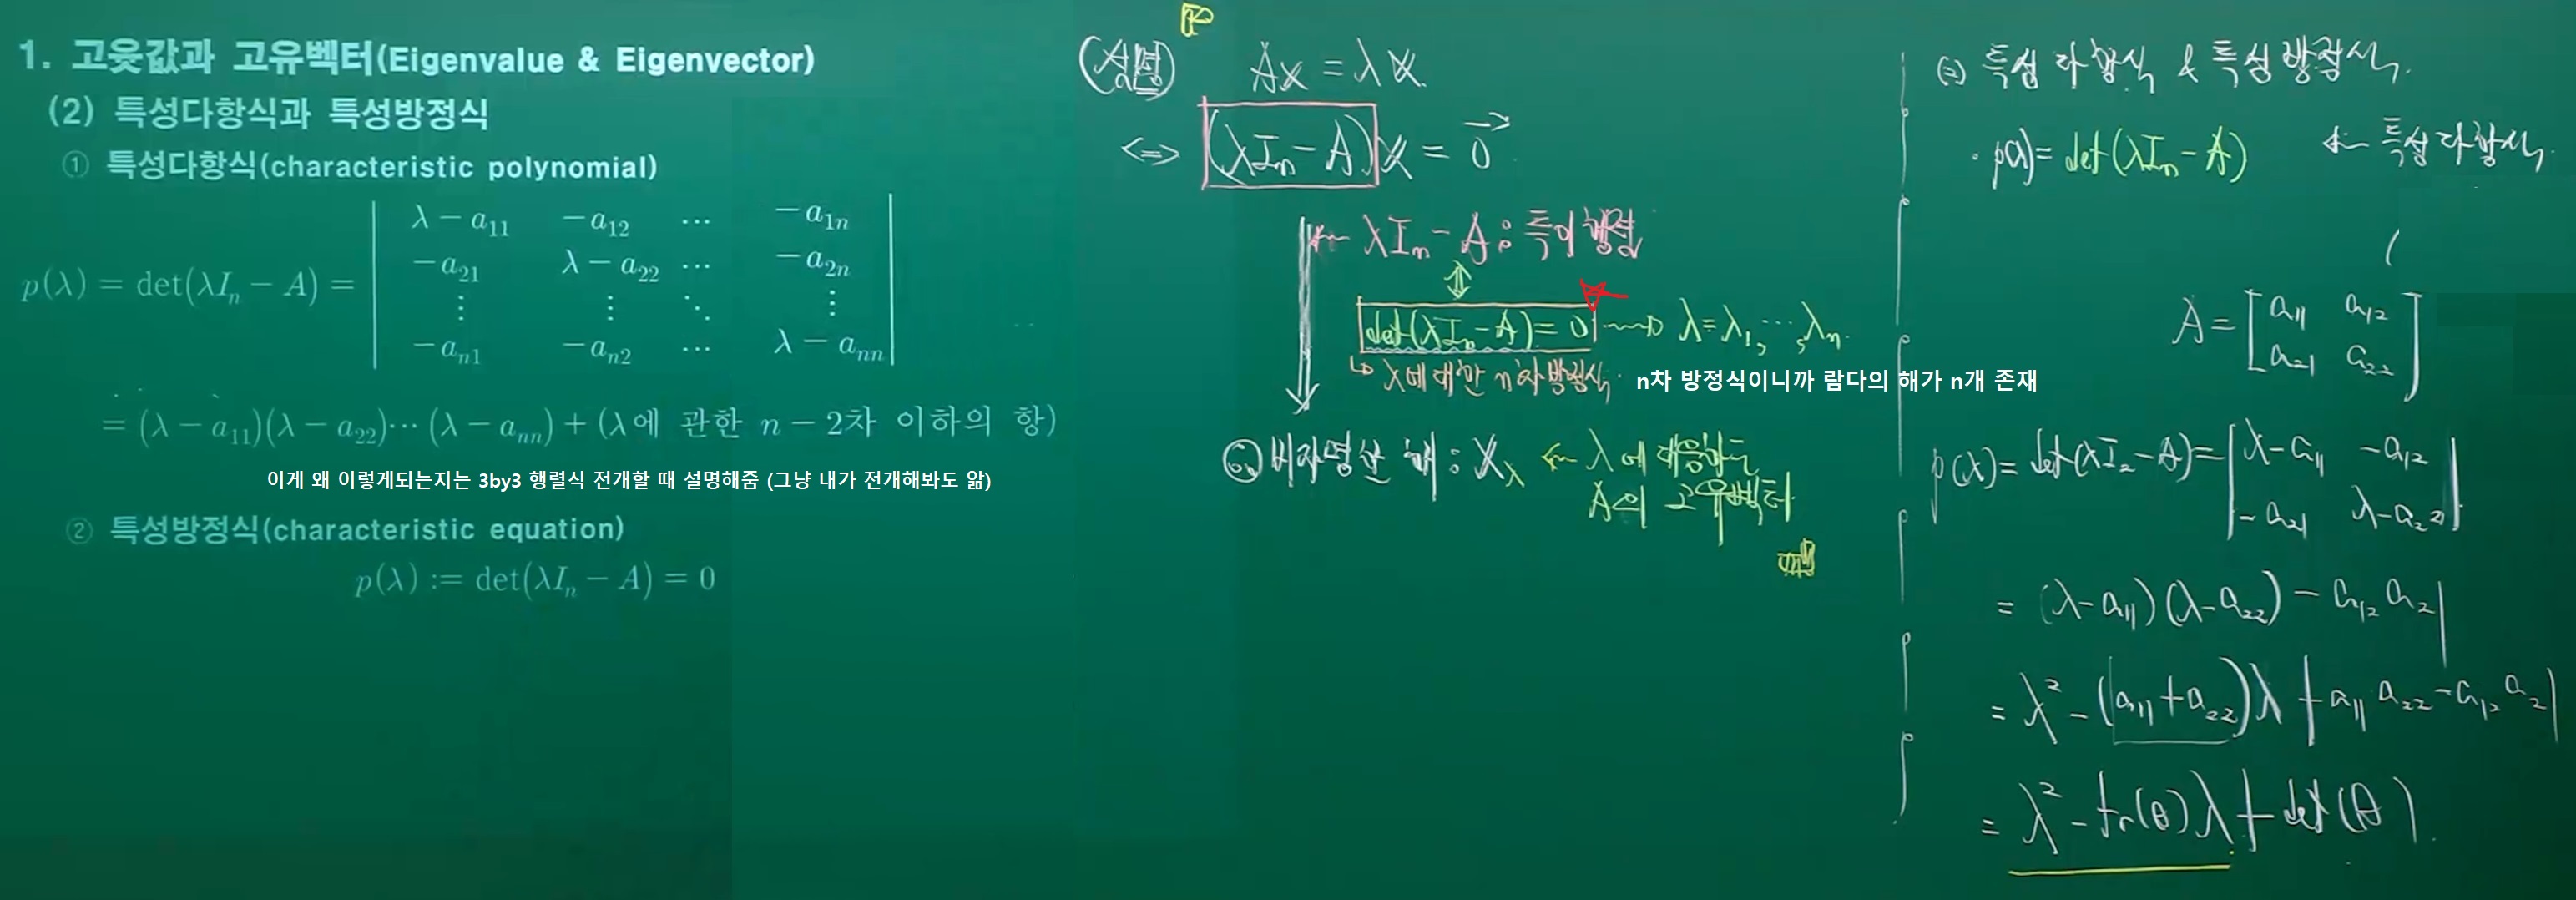 1. 고윳값과 고유벡터(Eigenvalue & Eigenvector)
(2) 특성다항식과 특성방정식
① 특성다항식(characteristic polynomial)
p(λ) = det(λIₙ − A) =
λ − a₁₁ −a₁₂ ⋯ −a₁ₙ
−a₂₁ λ − a₂₂ ⋯ −a₂ₙ
⋮ ⋮ ⋱ ⋮
−aₙ₁ −aₙ₂ ⋯ λ − aₙₙ
= (λ − a₁₁)(λ − a₂₂)⋯(λ − aₙₙ) + (λ에 관한 n − 2차 이하의 항)
이게 왜 이렇게되는지는 3by3 행렬식 전개할 때 설명해줌 (그냥 내가 전개해봐도 앎)
② 특성방정식(characteristic equation)
p(λ) := det(λIₙ − A) = 0
(설명) Ax = λx
<=> (λIₙ − A)x = 0⃗
← λIₙ − A : 특이행렬
⇕
det(λIₙ − A) = 0 → λ = λ₁, ⋯, λₙ
↳ λ에 대한 n차방정식. n차 방정식이니까 람다의 해가 n개 존재
비자명한 해 : x_λ ← λ에 대응하는
A의 고유벡터
특성다항식 & 특성방정식.
· p(λ) = det(λIₙ − A) ← 특성다항식.
A = [a₁₁ a₁₂
a₂₁ a₂₂]
p(λ) = det(λI₂ − A) = |λ−a₁₁ −a₁₂
−a₂₁ λ−a₂₂|
= (λ−a₁₁)(λ−a₂₂) − a₁₂a₂₁
= λ² − (a₁₁+a₂₂)λ + a₁₁a₂₂ − a₁₂a₂₁
= λ² − tr(A)λ + det(A).